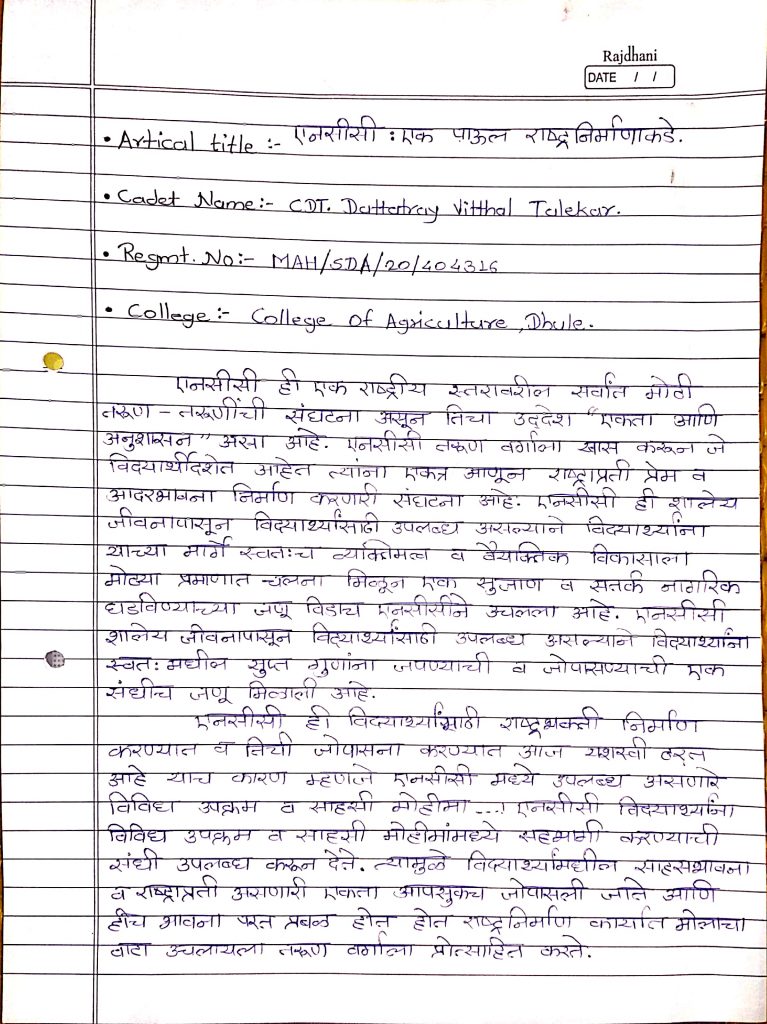 Rajdhani
DATE / /
• Artical title :- एनसीसी : एक पाऊल राष्ट्रनिर्माणाकडे.
• Cadet Name:- CDT. Dattatray Vitthal Talekar.
• Regmt. No:- MAH/SDA/20/404316
• College :- College of Agriculture, Dhule.
एनसीसी ही एक राष्ट्रीय स्तरावरील सर्वात मोठी
तरुण - तरुणींची संघटना असून तिचा उद्देश "एकता आणि
अनुशासन" असा आहे. एनसीसी तरुण वर्गाला खास करून जे
विद्यार्थीदशेत आहेत त्यांना एकत्र आणून राष्ट्राप्रती प्रेम व
आदरभावना निर्माण करणारी संघटना आहे. एनसीसी ही शालेय
जीवनापासून विद्यार्थ्यांसाठी उपलब्ध असल्याने विद्यार्थ्यांना
याच्या मार्गे स्वतःच व्यक्तिमत्व व वैयक्तिक विकासाला
मोठ्या प्रमाणात चलना मिळून एक सुजाण व सतर्क नागरिक
घडविण्याच्या जणू विडाच एनसीसीने उचलला आहे. एनसीसी
शालेय जीवनापासून विद्यार्थ्यांसाठी उपलब्ध असल्याने विद्यार्थ्यांना
स्वतः मधील सुप्त गुणांना जपण्याची व जोपासण्याची एक
संधीच जणू मिळाली आहे.
एनसीसी ही विद्यार्थ्यांसाठी राष्ट्रभक्ती निर्माण
करण्यात व तिची जोपासना करण्यात आज यशस्वी ठरत
आहे याच कारण म्हणजे एनसीसी मध्ये उपलब्ध असणारे
विविध उपक्रम व साहसी मोहीमा ...! एनसीसी विद्यार्थ्यांना
विविध उपक्रम व साहसी मोहीमांमध्ये सहभागी करण्याची
संधी उपलब्ध करून देते. त्यामुळे विद्यार्थ्यांमधील साहसभावना
व राष्ट्राप्रती असणारी एकता आपसुकच जोपासली जाते आणि
हीच भावना परत प्रबळ होत होत राष्ट्रनिर्माण कार्यात मोलाचा
वाटा उचलायला तरुण वर्गाला प्रोत्साहित करते.